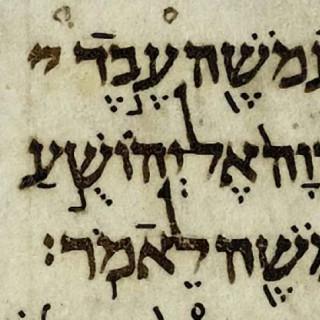 מֹשֶׁה עֶבֶד י
וָה אֶל יְהוֹשֻׁעַ
מֹשֶׁה לֵאמֹר׃